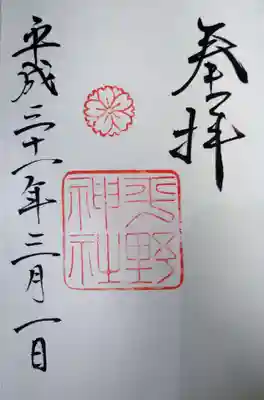 奉拝
天野神社
平成三十一年三月一日